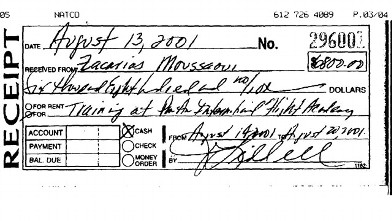 05 NATCO 612 726 4089 P.03/04
RECEIPT
DATE August 13, 2001 No. 296007
RECEIVED FROM Zacarias Moussaoui $6800.00
Six Thousand Eight Hundred and 00/100 DOLLARS
FOR RENT
FOR Training at Pan Am International Flight Academy
ACCOUNT CASH
PAYMENT CHECK FROM August 14, 2001 August 20, 2001
BAL. DUE MONEY ORDER BY
1182